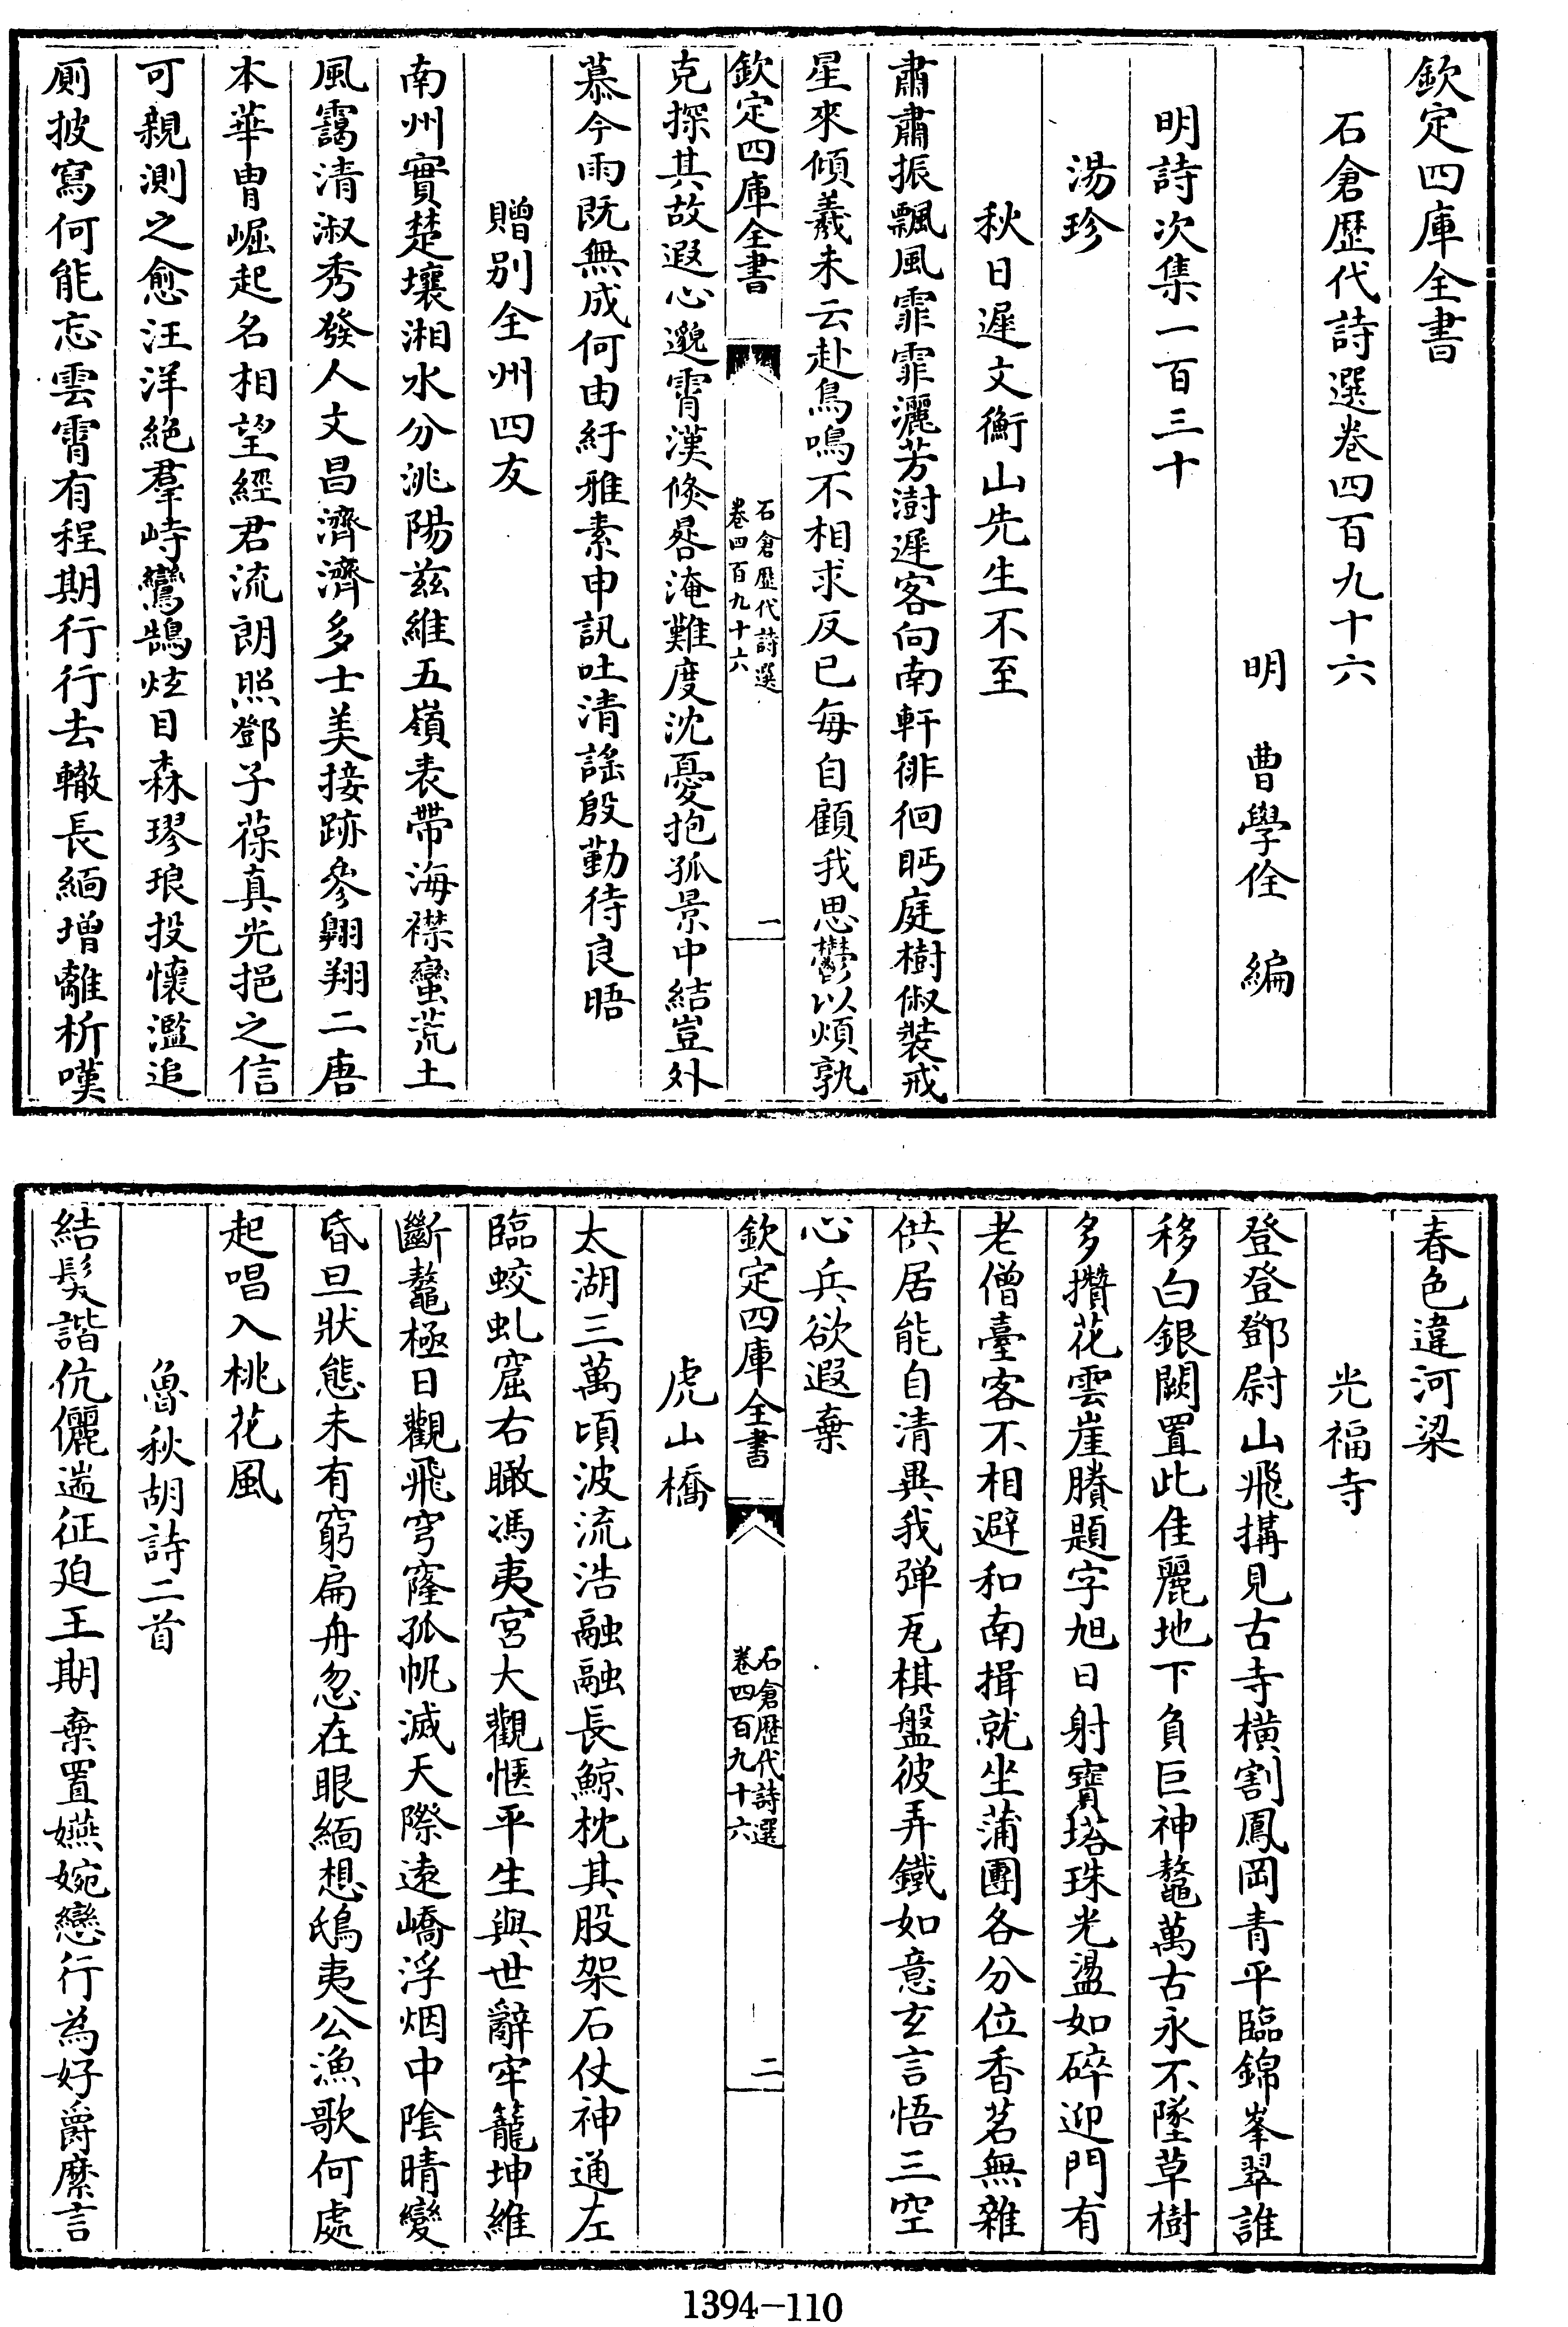 欽定四庫全書
石倉歴代詩選卷四百九十六
明 曹學佺 編
明詩次集一百三十
湯珍
秋日遲文衡山先生不至
肅肅振飄風霏霏灑芳澍遲客向南軒徘徊眄庭樹俶裝戒
星來傾羲未云赴鳥鳴不相求反已每自顧我思鬱以煩孰
欽定四庫全書
石倉歴代詩選
卷四百九十六
一
克探其故遐心邈霄漢倐晷淹難度沈憂抱孤景中結豈外
慕今雨既無成何由紓雅素申訊吐清謠殷勤待良晤
贈别全州四友
南州實楚壤湘水分洮陽兹維五嶺表帶海襟蠻荒土
風靄清淑秀發人文昌濟濟多士美接跡參翺翔二唐
本華胄崛起名相望經君流朗照鄧子葆真光挹之信
可親測之愈汪洋絶羣峙鸞鵠炫目森璆琅投懷濫追
厠披寫何能忘雲霄有程期行行去轍長緬增離析嘆
春色違河梁
光福寺
登登鄧尉山飛搆見古寺橫割鳳岡青平臨錦峯翠誰
移白銀闕置此佳麗地下負巨神鼇萬古永不墜草樹
多攢花雲崖賸題字旭日射寶塔珠光盪如碎迎門有
老僧臺客不相避和南揖就坐蒲團各分位香茗無雜
供居能自清異我弹瓦棋盤彼弄鐵如意玄言悟三空
心兵欲遐棄
欽定四庫全書
石倉歴代詩選
卷四百九十六
二
虎山橋
太湖三萬頃波流浩融融長鯨枕其股架石仗神通左
臨蛟虬窟右瞰馮夷宮大觀愜平生與世辭牢籠坤維
斷鼇極日觀飛穹窿孤帆滅天際遠嶠浮烟中陰晴變
昏旦狀態未有窮扁舟忽在眼緬想鴟夷公漁歌何處
起唱入桃花風
魯秋胡詩二首
結髮諧伉儷遄征廹王期棄置嬿婉戀行為好爵縻言
1394-110